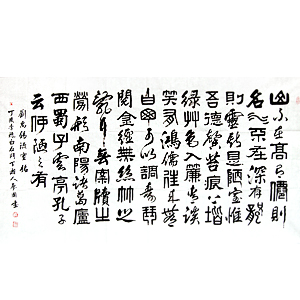 山不在高有僊則
名水不在深有龍
則靈斯是陋室惟
吾德馨苔痕上階
綠草色入簾青談
笑有鴻儒往來無
白丁可以調素琴
閱金經無絲竹之
亂耳無案牘之
勞形南陽諸葛廬
西蜀子雲亭孔子
云何陋之有
劉禹錫陋室銘
丁亥